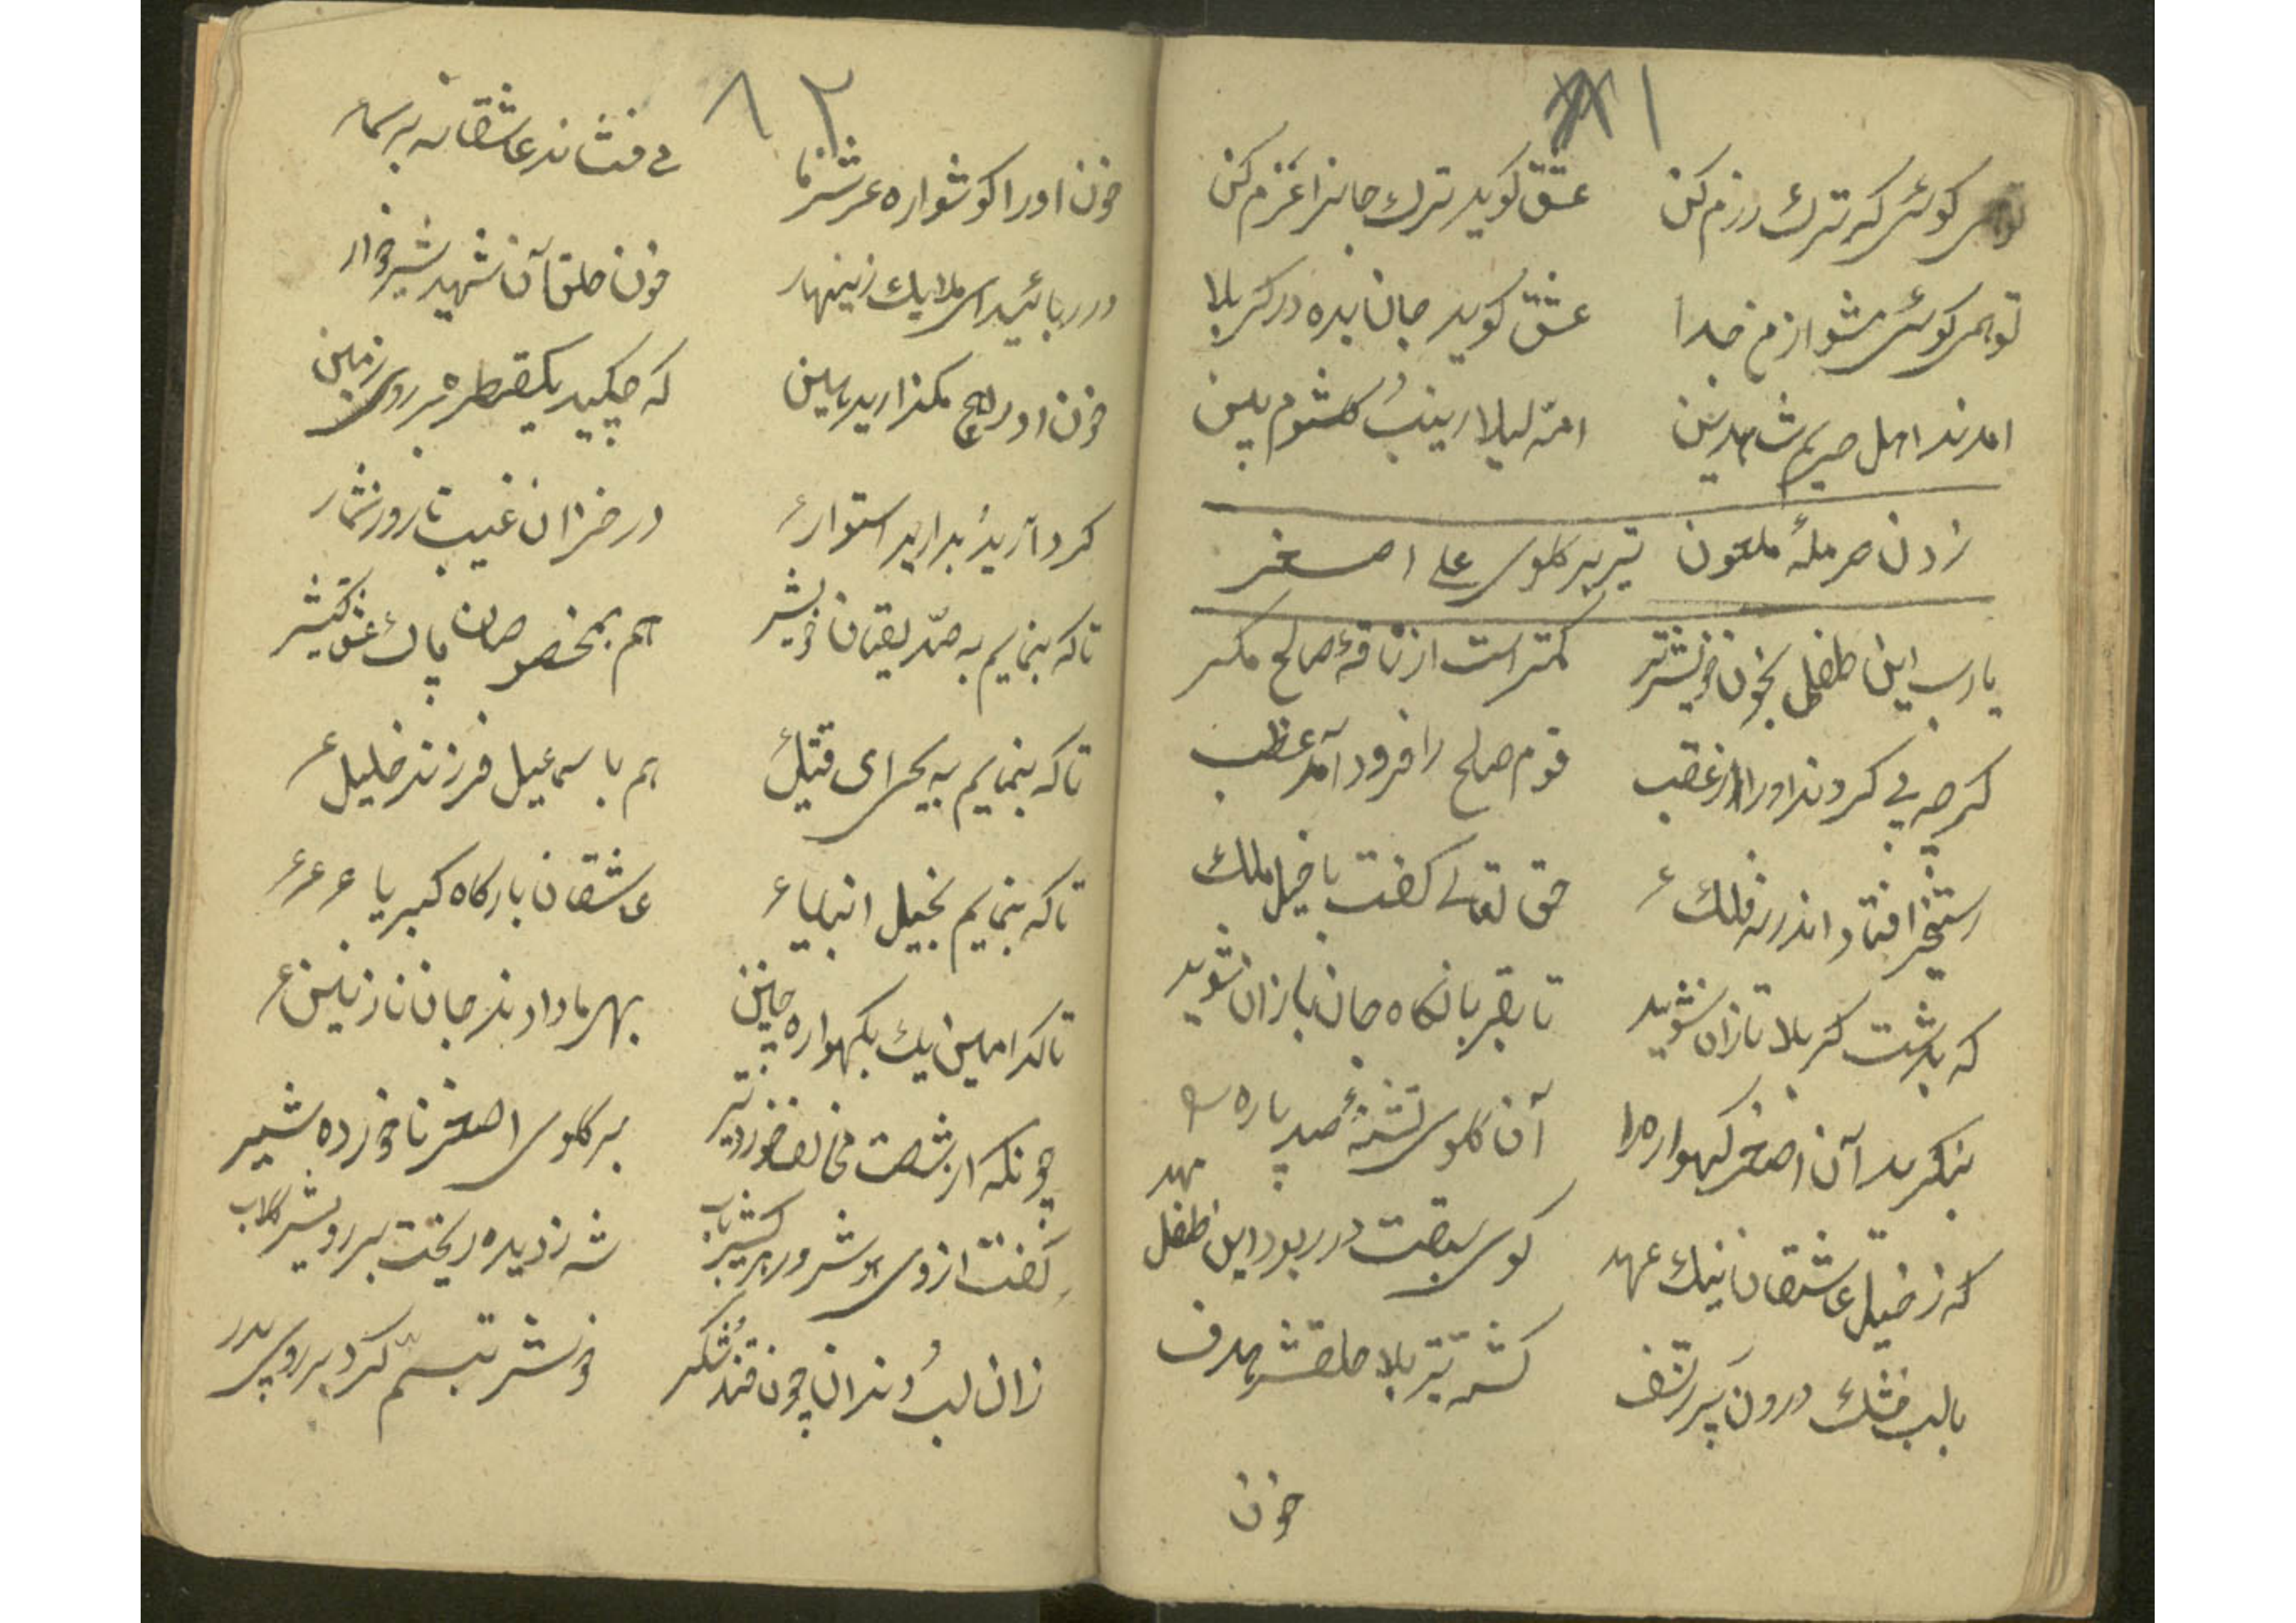 ۸۱
تو همی گوئی که ترک رزم کن عشق گوید ترک جانرا عزم کن
تو همی گوئی مشو از من جدا عشق گوید جان بده در کربلا
امدند اهل حریم شاهدین امّ لیلا زینب و کلثوم بین
زدن حرملهٔ ملعون تیر بر گلوی علی اصغر
یا رب این طفلی بخون خویش تر کمتر است از ناقهٔ صالح مگر
گرچه پی کردند او را از غضب قوم صالح را فرود آمد عطب
رستخیز افتاد اندر نه فلک حق تعالی گفت با خیل ملک
که بدشت کربلا تازان شوید تا بقربانگاه جانبازان شوید
بنگرید آن اصغر گهواره را آن گلوی تشنهٔ صد پاره
که ز خیل عاشقان نیک عهد گوی سبقت در ربود این طفل مهد
با لب خشک و درون پر ز تف گشته تیر بلا حلقش هدف
خون
۸۲
خون او را گوشواره عرش ما می فشاند عاشقانه بر سما
در ربائید ای ملایک زینهار خون حلق آن شهید شیرخوار
خون او را هیچ مگذارید هین که چکید یکقطره بر روی زمین
گرد آرید و بدارید استوار در خزان غیب تا روز شمار
تا که بنمایم به صدّیقان خویش هم بمخصوصان پاک عشق کیش
تا که بنمایم به یحیای قتیل هم با سمعیل فرزند خلیل
تا که بنمایم بخیل انبیا عاشقان بارگاه کبریا
تا کدامین یک بگهواره چنین بهر ما دادند جان نازنین
چونکه از شصت مخالف خورد تیر بر گلوی اصغر ناخورده شیر
رفت از وی هوش و در بر کشید باب شه ز دیده ریخت بر رویش گلاب
زان لب و دندان چون قند و شکر خوش تبسّم کرد بر روی پدر